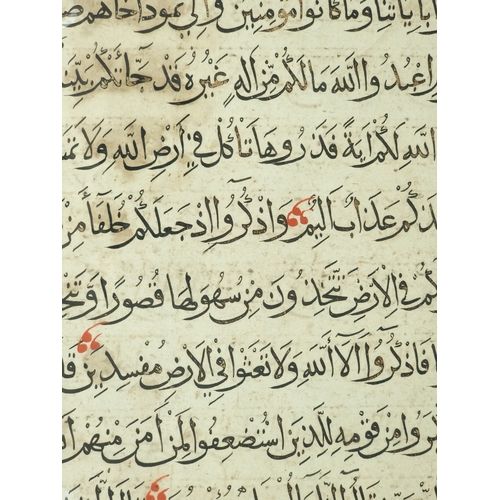 بآياتنا وما كانوا مومنين والي ثمود اخاهم
اعبدوا الله مالكم من اله غيره قد جاءتكم بينة
الله لكم اية فذروها تاكل في ارض الله ولا
عذاب اليم واذكروا اذ جعلكم خلفآء من
في الارض تتخذون من سهولها قصورا
فاذكروا الآء الله ولا تعثوا في الارض مفسدين
من قومه للذين استضعفوا لمن امن منهم